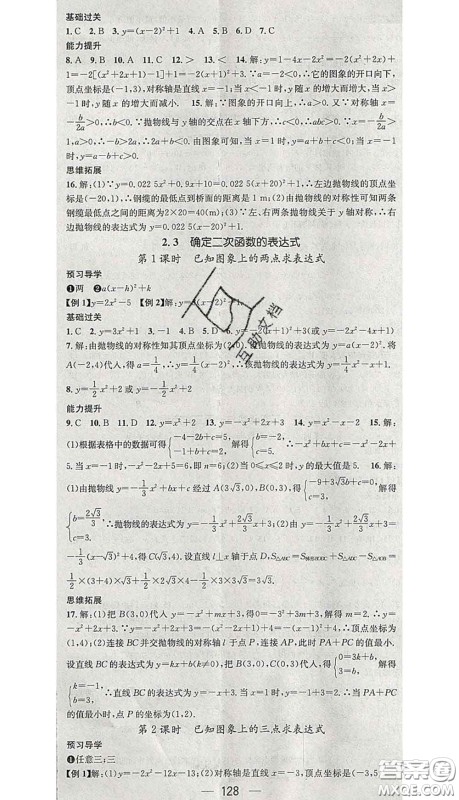 基础过关
1. C　2. B　3. y=(x-2)²+1　4. A　5. B　6. D　7. C
能力提升
8. A　9. B　10. A　11. C　12. >　13. <　14. 解:y=1-4x-2x²=-2(x²+2x)+1
=-2[(x²+2x+1)-1]+1=-2(x+1)²+3.∵a=-2<0,∴它的图象的开口向下,
顶点坐标是(-1,3),对称轴是直线x=-1.当x<-1时,y随x的增大而增大,当x>
-1时,y随x的增大而减小.　15. 解:∵图象的开口向下,∴a<0.又∵对称轴x=
-b/2a>0,∴b>0.∵抛物线与y轴的交点在x轴下方,∴c<0,∴abc>0.∵-b/2a>
1,a>0,∴-b<2a,∴2a+b>0.当x=1时,y=a+b+c>0.当x=-1
时,y=a-b+c>0.
思维拓展
16. 解:(1)∵y=0.022 5x²+0.9x+10=0.022 5(x+20)²+1,∴左边抛物线的顶点坐
标是(-20,1),∴钢缆的最低点到桥面的距离是1 m;(2)由抛物线的对称性可知两条
钢缆最低点之间的距离为2×20=40(m);(3)∵左、右两条抛物线关于y轴对称,∴右
边抛物线为y=0.022 5(x-20)²+1.
2.3　确定二次函数的表达式
第1课时　已知图象上的两点求表达式
预习导学
❶两　❷a(x-h)²+k
【例1】y=2x²-5　【例2】解:
基础过关
1. C　2. y=3x²+1　3. -1　4. A　5. B　6. D
7. 解:由抛物线的对称性知其顶点坐标为(2,0).
将A(-2,4)代入,得a=1/4,∴y=1/4(x-2)²,∴该抛物线的表达式为y=1/4x²-x+1.
8. y=-1/2x²+1/2x+2
能力提升
9. C　10. B　11. A　12. y=x²+2　13. y=-x²+2x+3　14. y=x²-x-2　15. 解:
(1)根据表格中的数据可得{-4-2b+c=5, -1+b+c=2, 解得{b=-2, c=5, ∴y=-x²-2x+
5.当x=-1时,y=6,即n=6;(2)当0≤x≤2时,y的最大值是5.　16. 解:
(1)由抛物线y=-1/3x²+bx+c经过A(3√3,0),B(0,3),得{-9+3√3b+c=0, c=3, 解得
{b=2√3/3, c=3. ∴抛物线的表达式为y=-1/3x²+2√3/3x+3;(2)由y=-1/3x²+2√3/3x+3=
-1/3(x-√3)²+4,得C(√3,4).设直线l⊥x轴于点D,
思维拓展
17. 解:(1)把B(3,0)代入y=-x²+mx+3,得0=-3²+3m+3,解得m=2.∴y=
-x²+2x+3.∵y=-x²+2x+3=-(x²-2x+1)+4=-(x-1)²+4,∴顶点坐标为
(1,4);(2)连接BC并交抛物线的对称轴l于点P,连接AP,此时PA+PC的值最小.
设直线BC的表达式为y=kx+b(k≠0),把B(3,0),C(0,3)代入,得{0=3k+b, 3=b, 解得
{k=-1, b=3, ∴直线BC的表达式为y=-x+3.当x=1时,y=-1+3=2.∴当PA+PC
的值最小时,点P的坐标为(1,2).
第2课时　已知图象上的三点求表达式
预习导学
❶任意三;三
【例1】解:(1)y=-2x²-12x-13;(2)对称轴是直线x=-3,顶点坐标为(-3,5
— 128 —
互助文档
答案圈
MXQE.COM